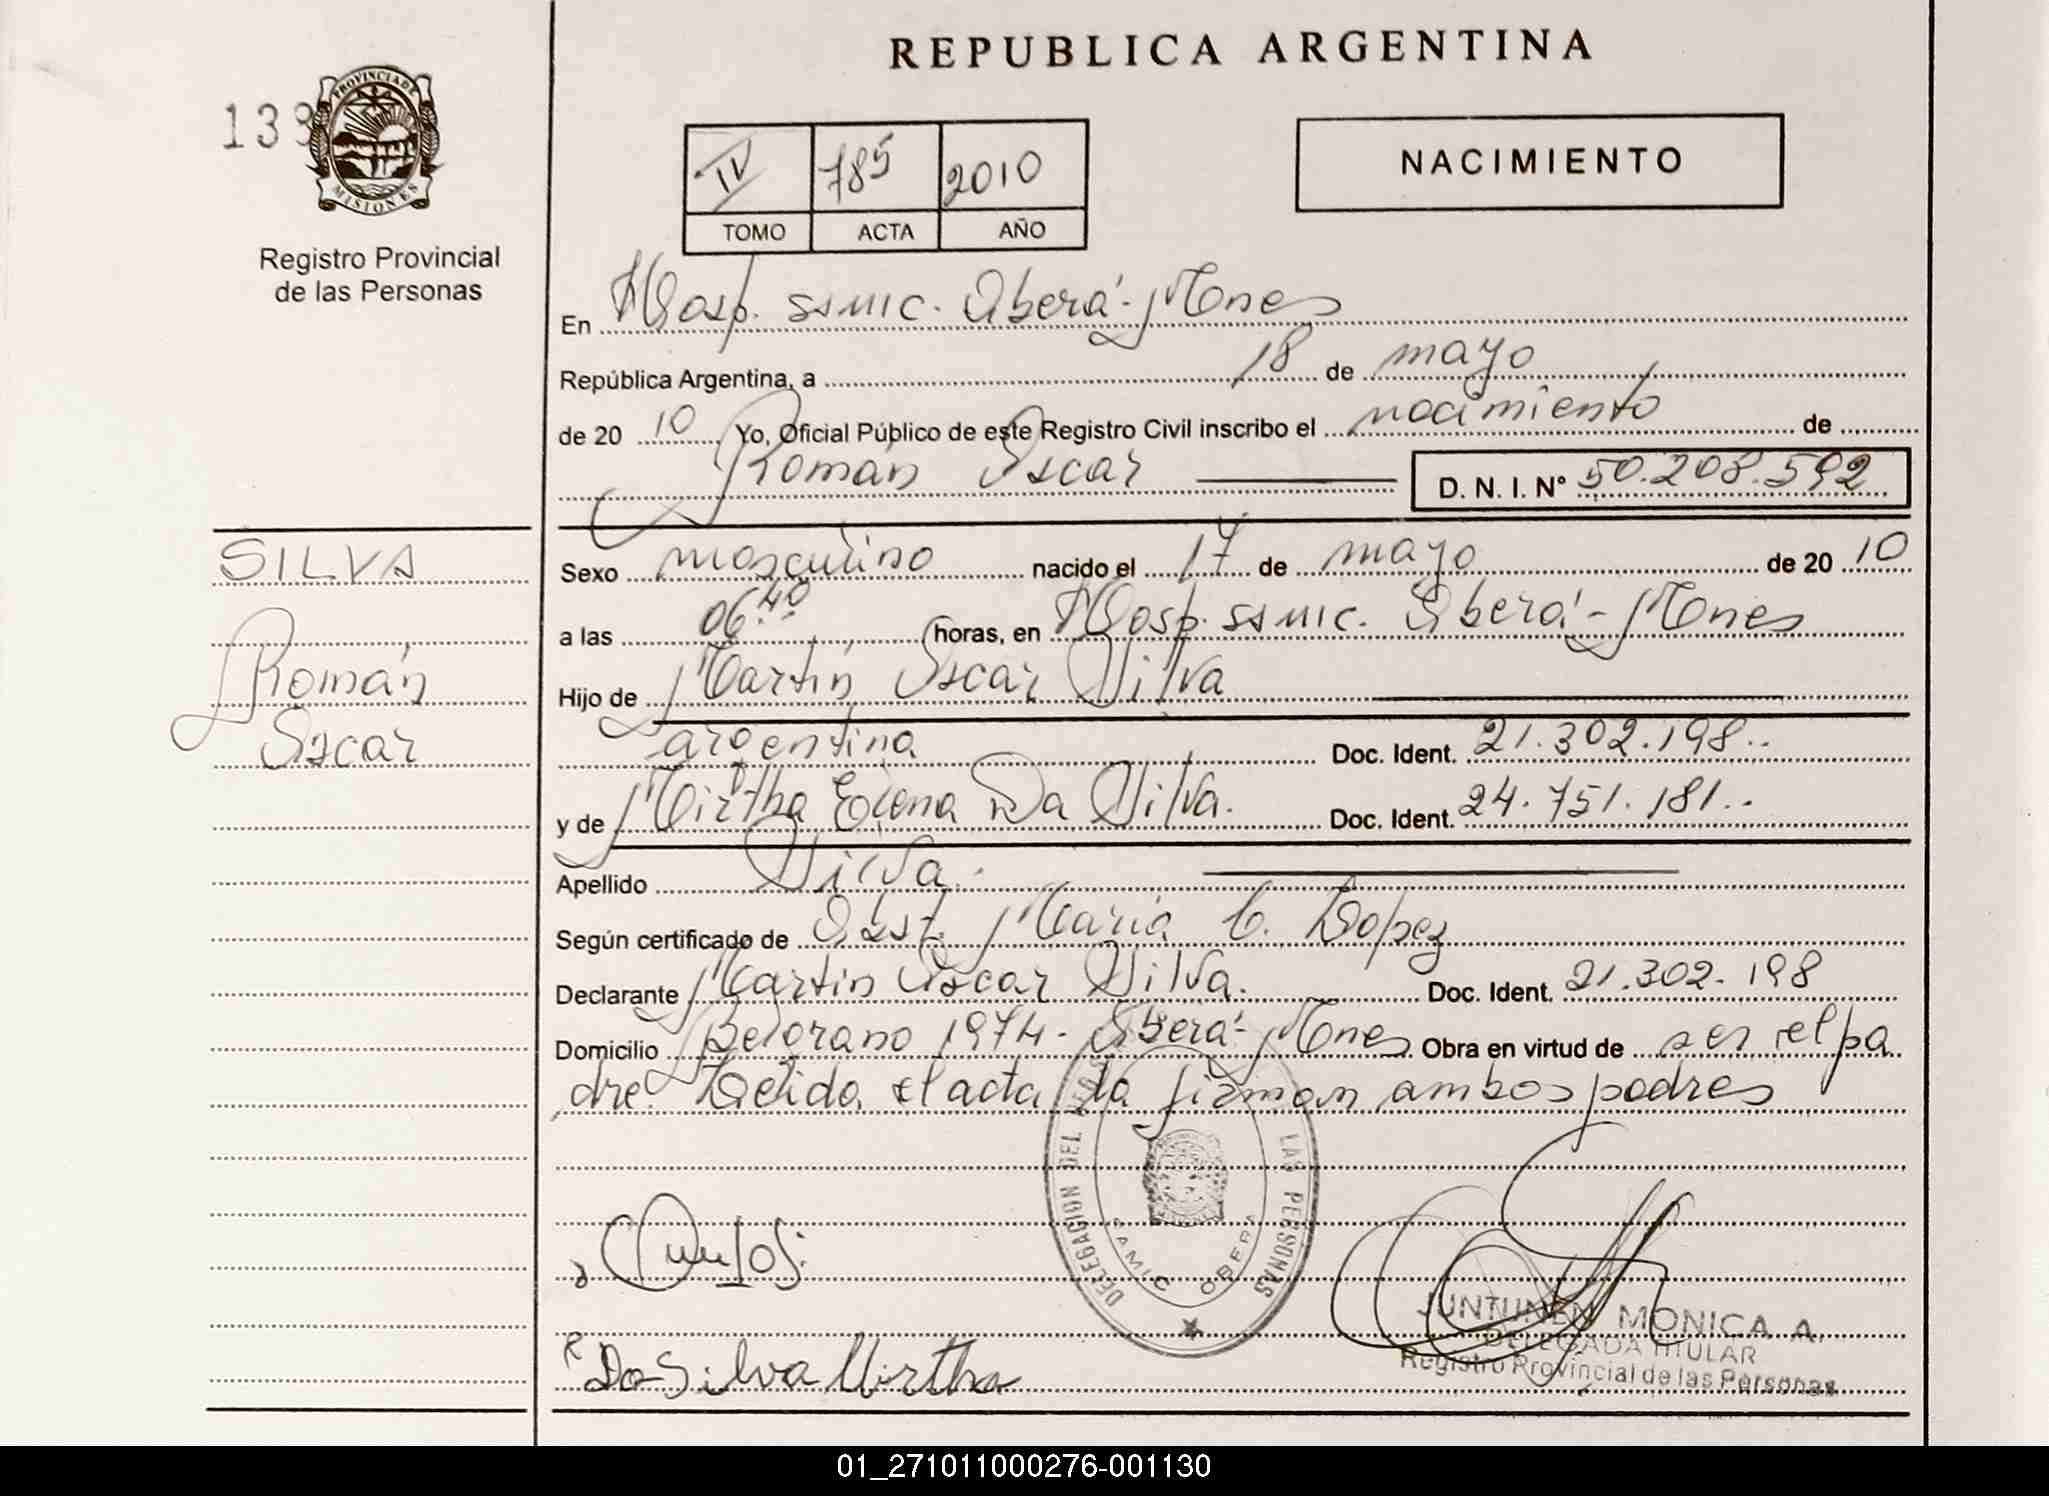 REPUBLICA ARGENTINA
133
PROVINCIA DE
MISIONES
Registro Provincial
de las Personas
IV 785 2010
TOMO ACTA AÑO
NACIMIENTO
En Hosp. SAMIC. Oberá-Mnes
República Argentina, a 18 de mayo
de 20 10 Yo, Oficial Público de este Registro Civil inscribo el nacimiento de
Román Oscar D. N. I. N° 50.208.592
SILVA
Román
Oscar
Sexo masculino nacido el 17 de mayo de 20 10
a las 06.40 horas, en Hosp. SAMIC. Oberá-Mnes
Hijo de Martin Oscar Silva
argentina Doc. Ident. 21.302.198..
y de Mirtha Elena Da Silva. Doc. Ident. 24.751.181..
Apellido Silva.
Según certificado de Obst. Maria C. Lopez
Declarante Martin Oscar Silva. Doc. Ident. 21.302.198
Domicilio Belgrano 1974- Oberá-Mnes Obra en virtud de ser el pa
dre. Leida el acta la firman ambos padres
DELEGACION DEL LAS PERSONAS
SAMIC OBERA
JUNTUNEN MONICA A.
DELEGADA TITULAR
Registro Provincial de las Personas
Da Silva Mirtha
01_271011000276-001130